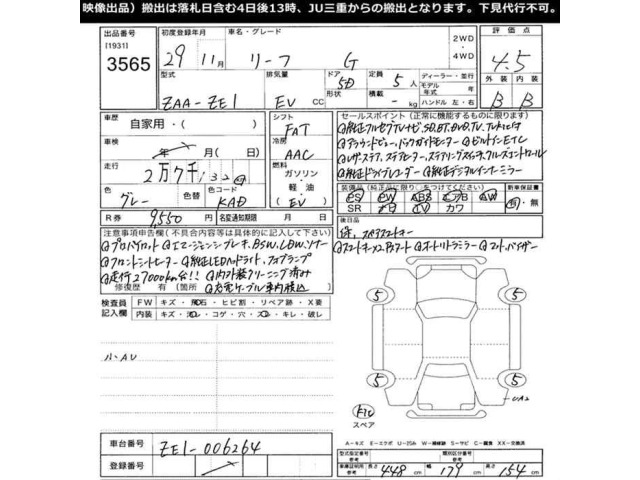 映像出品）搬出は落札日含む4日後13時、JU三重からの搬出となります。下見代行不可。
出品番号
[1931]
3565
初度登録年月
29年 11月
車名・グレード
リーフ G
2WD
・
4WD
評価点
4.5
型式
ZAA-ZE1
排気量
EV CC
ドア
5D
形状
定員
5人
積載
- kg
ディーラー・並行
モデル年式 年
ハンドル 左・右
外装
B
内装
B
車歴
自家用・( )
車検
年 月
走行
2万7千132
色
グレー
色替
色コード
KAD
シフト
FAT
冷房
AAC
燃料
ガソリン
軽油・
(EV)
R券
9,550円
名変通知期限 月 日
セールスポイント(正常に機能するものに限ります)
純正フルセグTVナビ・SD,BT,DVD,TV
アラウンドビュー,バックガイドモニター ビルトインETC
レザーステア,ステアヒーター,ステアリングスイッチ,クルーズコントロール
純正ドライブレコーダー 純正デジタルインナーミラー
装備品(純正品に限り○をつけてください)
PS PW AW
SR TV カワ
新車保証書
有・無
後日品
注意事項申告欄(不具合内容等は具体的に記入して下さい)
プロパイロット エマージェンシーブレーキ,BSW,LDW,ソナー
フロントシートヒーター 純正LEDヘッドライト,フォグランプ
走行27000km台!! 内外装クリーニング済み
修復歴 有(箇所 充電ケーブル車内積込
スマートキーX2 オートリトラミラー マット,バイザー
検査員記入欄
FW キズ・飛石・ヒビ割・リペア跡・X要
内装 キズ・汚レ・コゲ・穴・スレ・キレ・破レ
小AU
5
5
5
5
UA2
スペア
A-キズ E-エクボ U-凹み W-補修跡 S-サビ C-腐食 XX-交換済
車台番号
ZE1-006264
登録番号
型式指定番号
参考
類別区分番号
参考
車庫証明用
参考
長さ 448 cm
幅 179 cm
高さ 154 cm